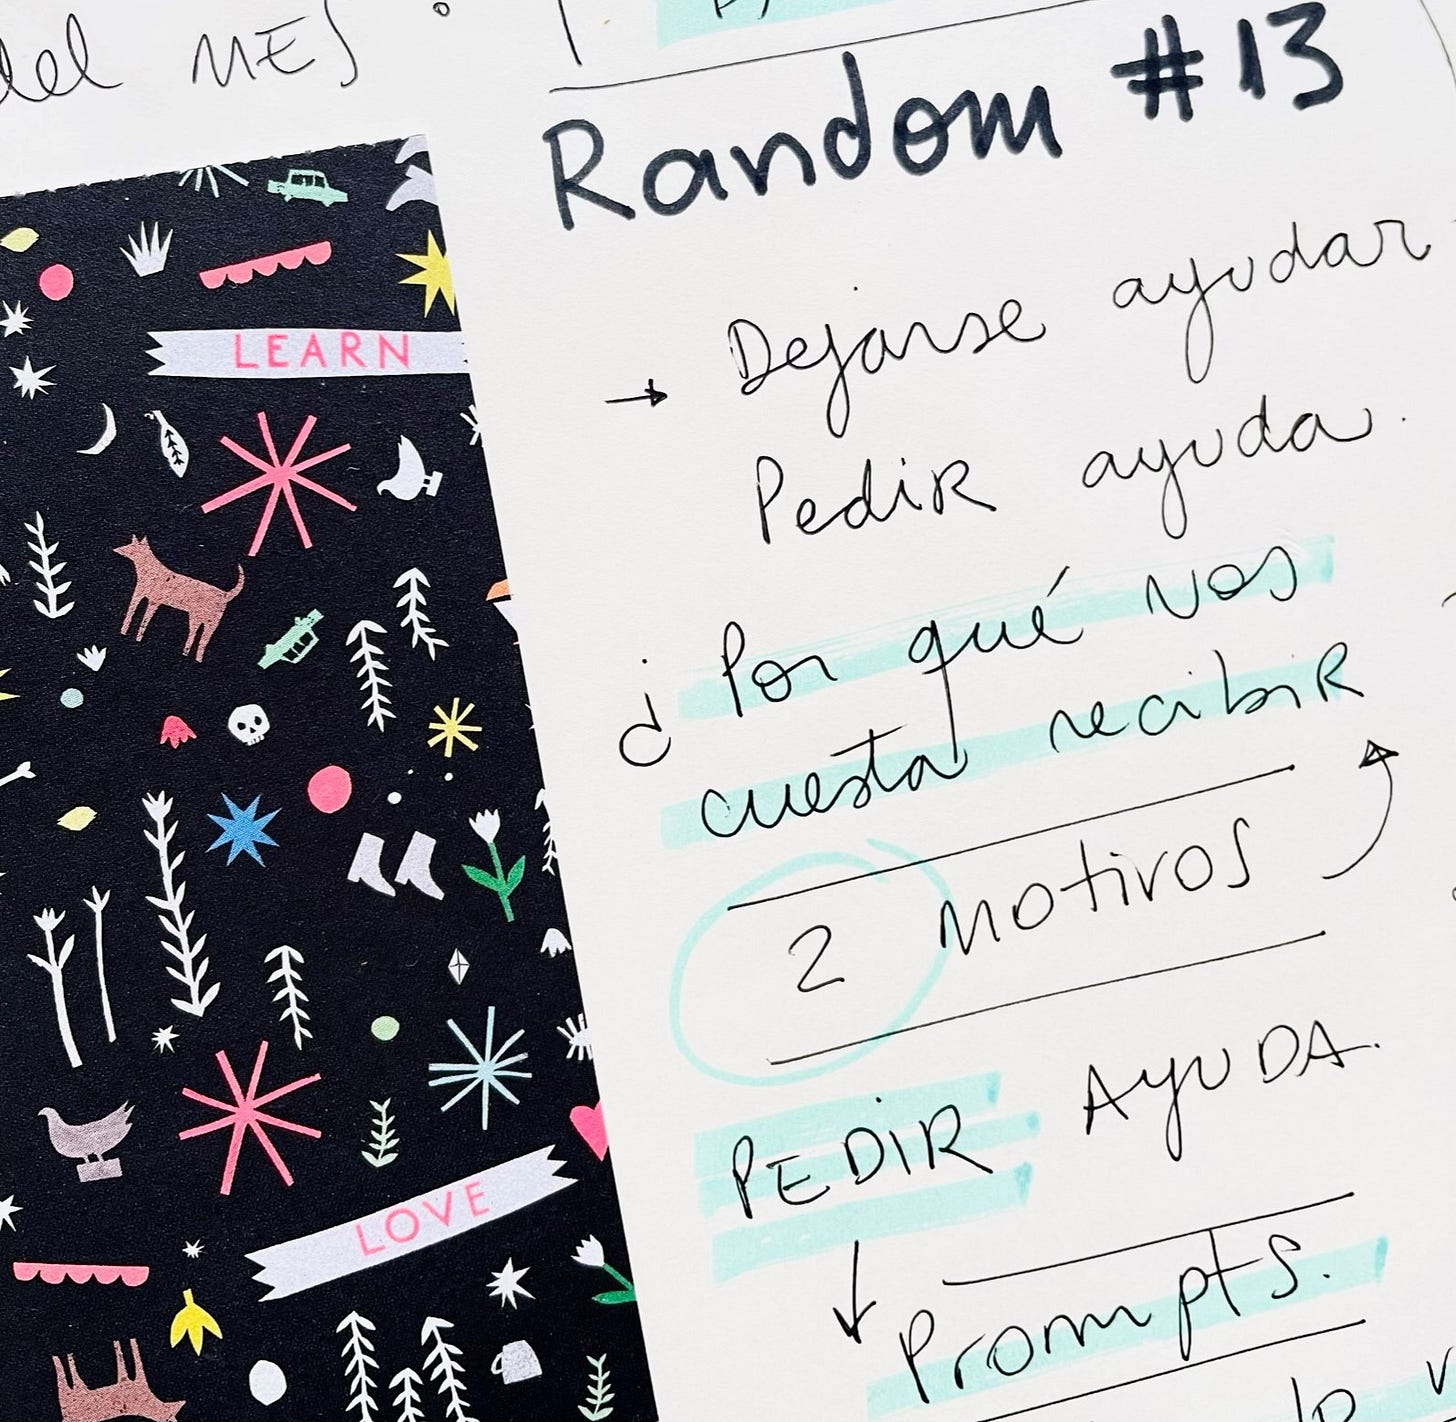 del MES
Random #13
→ Dejarse ayudar
Pedir ayuda.
¿Por qué nos
cuesta recibir
2 motivos
PEDIR AYUDA.
↓ Prompts.
LEARN
LOVE